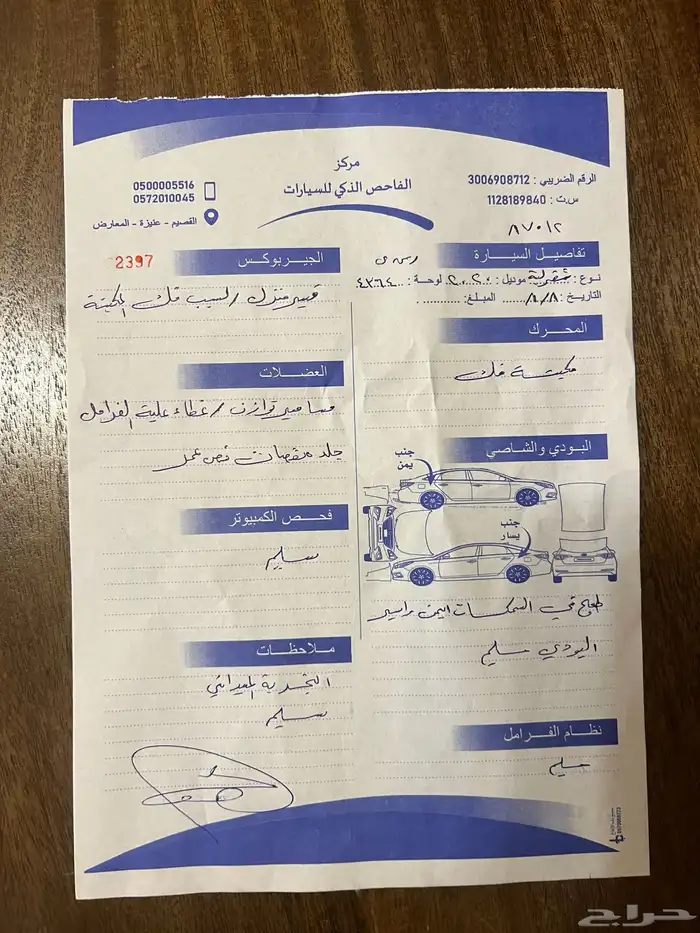 مركز
الفاحص الذكي للسيارات
الرقم الضريبي : 3006908712
س.ت : 1128189840
0500005516
0572010045
القصيم - عنيزة - المعارض
٨٧٠١٢
تفاصيل السيارة
نوع : شفرليه موديل : ٢٠٢٠ لوحة : ٤٣٦٤
التاريخ : ٨/٨/ المبلغ :
المحرك
مكينة فك
البودي والشاصي
جنب
يمن
جنب
يسار
طعج في السمكات ايمن وايسر
البودي سليم
نظام الفرامل
سليم
2397
الجير بوكس
قير منزل / لسبب فك المكينة
العضلات
مسامير توازن / غطاء علبة الفرامل
جلد مقصات
فحص الكمبيوتر
سليم
ملاحظات
التجربة الميداني
سليم
حراج